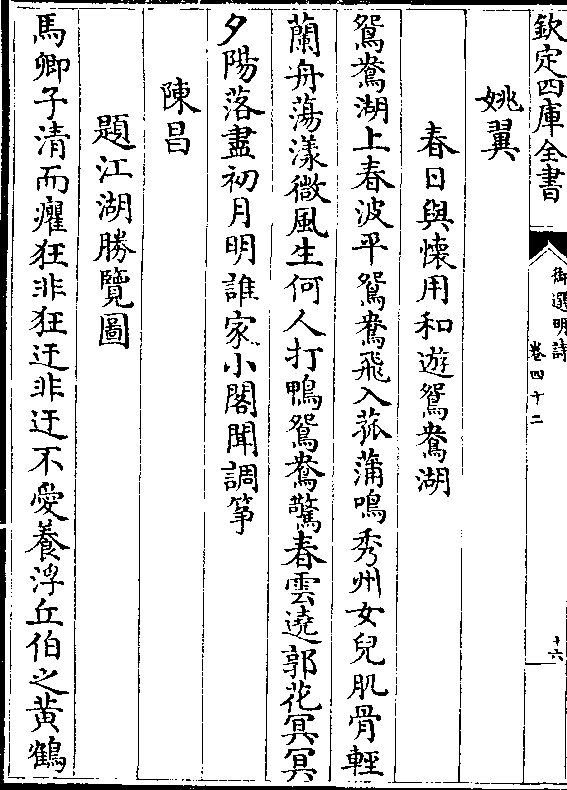 欽定四庫全書
御選明詩
卷四十二
十六
姚翼
春日與懷用和遊鴛鴦湖
鴛鴦湖上春波平鴛鴦飛入菰蒲鳴秀州女兒肌骨輕
蘭舟蕩漾微風生何人打鴨鴛鴦驚春雲遶郭花冥冥
夕陽落盡初月明誰家小閣聞調筝
陳昌
題江湖勝覽圖
馬卿子清而癯狂非狂迂非迂不愛養浮丘伯之黃鶴